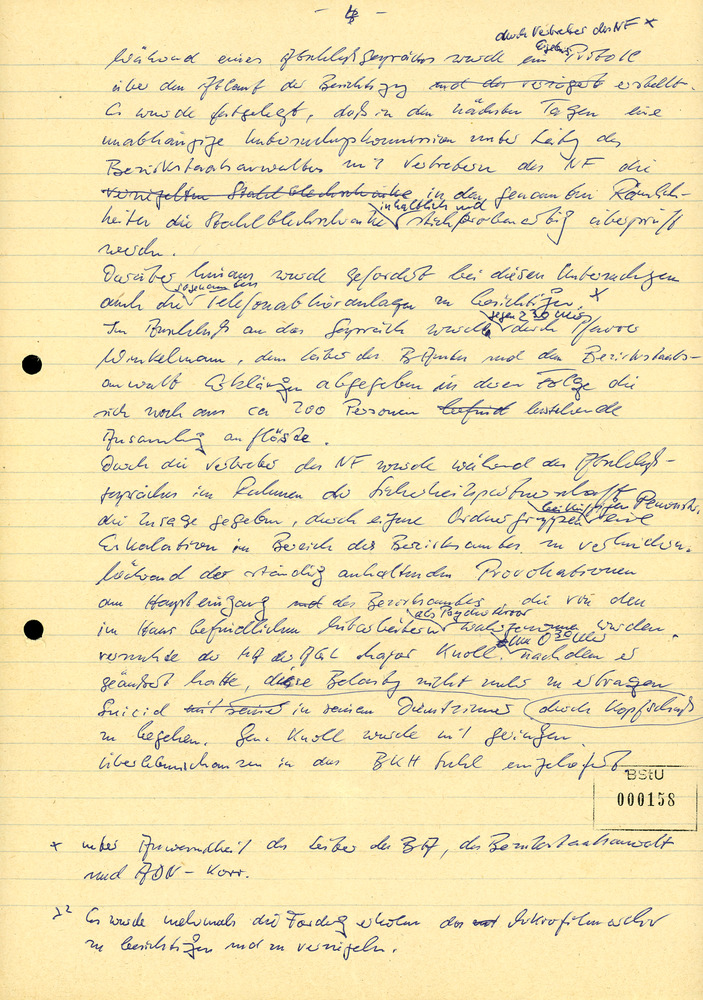 - 4 -
durch Vertreter des NF x
Während eines Abschlußgesprächs wurde ein Protokoll
über den Ablauf der Besichtigung und der versiegelt erstellt.
Es wurde festgelegt, daß in den nächsten Tagen eine
unabhängige Untersuchungskommission unter Leitg des
Bezirksstaatsanwaltes mit Vertretern des NF die
versiegelten Stahlblechschränke in den genannten Räumlich-
inhaltlich und
keiten die Stahlblechschränke stichprobenartig überprüft
werden.
Darüber hinaus wurde gefordert bei diesen Untersuchungen
sogenannten
auch die Telefonabhöranlagen zu besichtigen. x
gegen 2.30 Uhr
Im Anschluß an das Gespräch wurde durch Pfarrer
Winkelmann, dem Leiter des BAmtes und den Bezirksstaats-
anwalt Erklärungen abgegeben in deren Folge die
sich noch aus ca 200 Personen befind bestehende
Ansammlung auflöste.
Durch die Vertreter des NF wurde während des Abschluß-
gespräches im Rahmen der Sicherheitspartnerschaft
bei künftigen Demonstr.
die Zusage gegeben, durch eigene Ordnergruppen eine
Eskalation im Bereich des Bezirksamtes zu verhindern.
Während der ständig anhaltenden Provokationen
am Haupteingang und des Bezirksamtes die von den
als Psychoterror
im Haus befindlichen Mitarbeitern wahrgenommen wurden,
um 0.30 Uhr
versuchte der MA der AGL Major Knoll, nachdem er
geäußert hatte, diese Belastg nicht mehr zu ertragen
Suicid mit seiner in seinem Dienstzimmer durch Kopfschuß
zu begehen. Gen. Knoll wurde mit geringen
Überlebenschancen in das BKH Suhl eingeliefert
BStU
000158
x unter Anwesenheit des Leiter des BA, des Bezirksstaatsanwalt
und ADN-Korr.
x2 Es wurde mehrmals die Forderg erhoben das Mikrofilmarchiv
zu besichtigen und zu versiegeln.